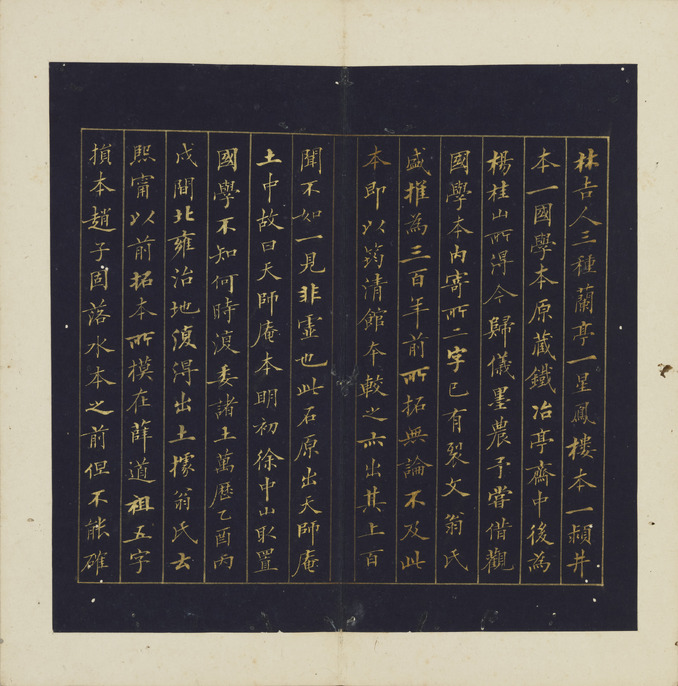 林吉人三種蘭亭一星鳳樓本一潁井
本一國學本原藏鐵冶亭齋中後為
楊桂山所得今歸儀墨農予嘗借觀
國學本內寄所二字已有裂文翁氏
盛推為三百年前所拓無論不及此
本即以筠清館本較之亦出其上百
聞不如一見非虛也此石原出天師庵
土中故曰天師庵本明初徐中山取置
國學不知何時復委諸土萬歷乙酉丙
戌間北雍治地復得出土據翁氏云
熙甯以前拓本所模在薛道祖五字
損本趙子固落水本之前但不能確